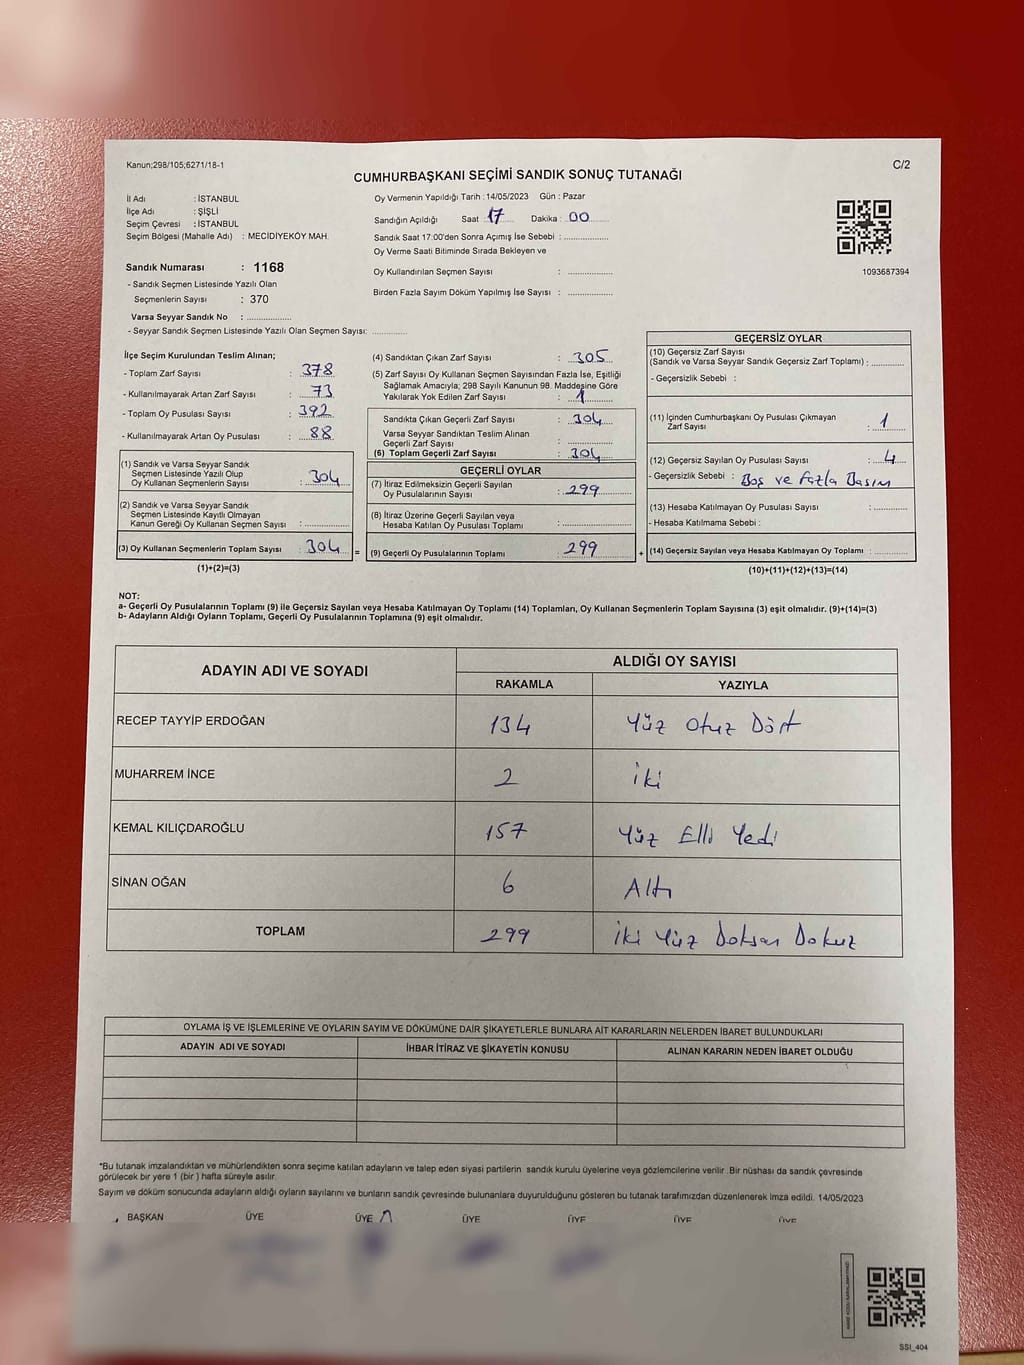 Kanun;298/105;6271/18-1
C/2
CUMHURBAŞKANI SEÇİMİ SANDIK SONUÇ TUTANAĞI
İl Adı : İSTANBUL
İlçe Adı : ŞİŞLİ
Seçim Çevresi : İSTANBUL
Seçim Bölgesi (Mahalle Adı) : MECİDİYEKÖY MAH.
Sandık Numarası : 1168
- Sandık Seçmen Listesinde Yazılı Olan
Seçmenlerin Sayısı : 370
Varsa Seyyar Sandık No : ..............
- Seyyar Sandık Seçmen Listesinde Yazılı Olan Seçmen Sayısı: ............
Oy Vermenin Yapıldığı Tarih : 14/05/2023 Gün : Pazar
Sandığın Açıldığı Saat 17 Dakika : 00
Sandık Saat 17:00'den Sonra Açımış İse Sebebi : ..............
Oy Verme Saati Bitiminde Sırada Bekleyen ve
Oy Kullandırılan Seçmen Sayısı : ..............
Birden Fazla Sayım Döküm Yapılmış İse Sayısı : ..............
1093687394
İlçe Seçim Kurulundan Teslim Alınan;
- Toplam Zarf Sayısı : 378
- Kullanılmayarak Artan Zarf Sayısı : 73
- Toplam Oy Pusulası Sayısı : 392
- Kullanılmayarak Artan Oy Pusulası : 88
(1) Sandık ve Varsa Seyyar Sandık
Seçmen Listesinde Yazılı Olup
Oy Kullanan Seçmenlerin Sayısı : 304
(2) Sandık ve Varsa Seyyar Sandık
Seçmen Listesinde Kayıtlı Olmayan
Kanun Gereği Oy Kullanan Seçmen Sayısı : ..............
(3) Oy Kullanan Seçmenlerin Toplam Sayısı : 304 =
(1)+(2)=(3)
(4) Sandıktan Çıkan Zarf Sayısı : 305
(5) Zarf Sayısı Oy Kullanan Seçmen Sayısından Fazla İse, Eşitliği
Sağlamak Amacıyla; 298 Sayılı Kanunun 98. Maddesine Göre
Yakılarak Yok Edilen Zarf Sayısı : 1
Sandıkta Çıkan Geçerli Zarf Sayısı : 304
Varsa Seyyar Sandıktan Teslim Alınan
Geçerli Zarf Sayısı : ..............
(6) Toplam Geçerli Zarf Sayısı : 304
GEÇERLİ OYLAR
(7) İtiraz Edilmeksizin Geçerli Sayılan
Oy Pusulalarının Sayısı : 299
(8) İtiraz Üzerine Geçerli Sayılan veya
Hesaba Katılan Oy Pusulası Toplamı : ..............
(9) Geçerli Oy Pusulalarının Toplamı : 299 +
GEÇERSİZ OYLAR
(10) Geçersiz Zarf Sayısı
(Sandık ve Varsa Seyyar Sandık Geçersiz Zarf Toplamı) : ..........
- Geçersizlik Sebebi :
(11) İçinden Cumhurbaşkanı Oy Pusulası Çıkmayan
Zarf Sayısı : 1
(12) Geçersiz Sayılan Oy Pusulası Sayısı : 4
- Geçersizlik Sebebi : Boş ve Fazla Basım
(13) Hesaba Katılmayan Oy Pusulası Sayısı : ..........
- Hesaba Katılmama Sebebi :
(14) Geçersiz Sayılan veya Hesaba Katılmayan Oy Toplamı : ..........
(10)+(11)+(12)+(13)=(14)
NOT:
a- Geçerli Oy Pusulalarının Toplamı (9) ile Geçersiz Sayılan veya Hesaba Katılmayan Oy Toplamı (14) Toplamları, Oy Kullanan Seçmenlerin Toplam Sayısına (3) eşit olmalıdır. (9)+(14)=(3)
b- Adayların Aldığı Oyların Toplamı, Geçerli Oy Pusulalarının Toplamına (9) eşit olmalıdır.
ADAYIN ADI VE SOYADI
ALDIĞI OY SAYISI
RAKAMLA YAZIYLA
RECEP TAYYİP ERDOĞAN 134 Yüz Otuz Dört
MUHARREM İNCE 2 İki
KEMAL KILIÇDAROĞLU 157 Yüz Elli Yedi
SİNAN OĞAN 6 Altı
TOPLAM 299 İki Yüz Doksan Dokuz
OYLAMA İŞ VE İŞLEMLERİNE VE OYLARIN SAYIM VE DÖKÜMÜNE DAİR ŞİKAYETLERLE BUNLARA AİT KARARLARIN NELERDEN İBARET BULUNDUKLARI
ADAYIN ADI VE SOYADI İHBAR İTİRAZ VE ŞİKAYETİN KONUSU ALINAN KARARIN NEDEN İBARET OLDUĞU
*Bu tutanak imzalandıktan ve mühürlendikten sonra seçime katılan adayların ve talep eden siyasi partilerin sandık kurulu üyelerine veya gözlemcilerine verilir. Bir nüshası da sandık çevresinde
görülecek bir yere 1 (bir ) hafta süreyle asılır.
Sayım ve döküm sonucunda adayların aldığı oyların sayılarını ve bunların sandık çevresinde bulunanlara duyurulduğunu gösteren bu tutanak tarafımızdan düzenlenerek imza edildi. 14/05/2023
BAŞKAN ÜYE ÜYE ÜYE ÜYE ÜYE ÜYE
SSI_404